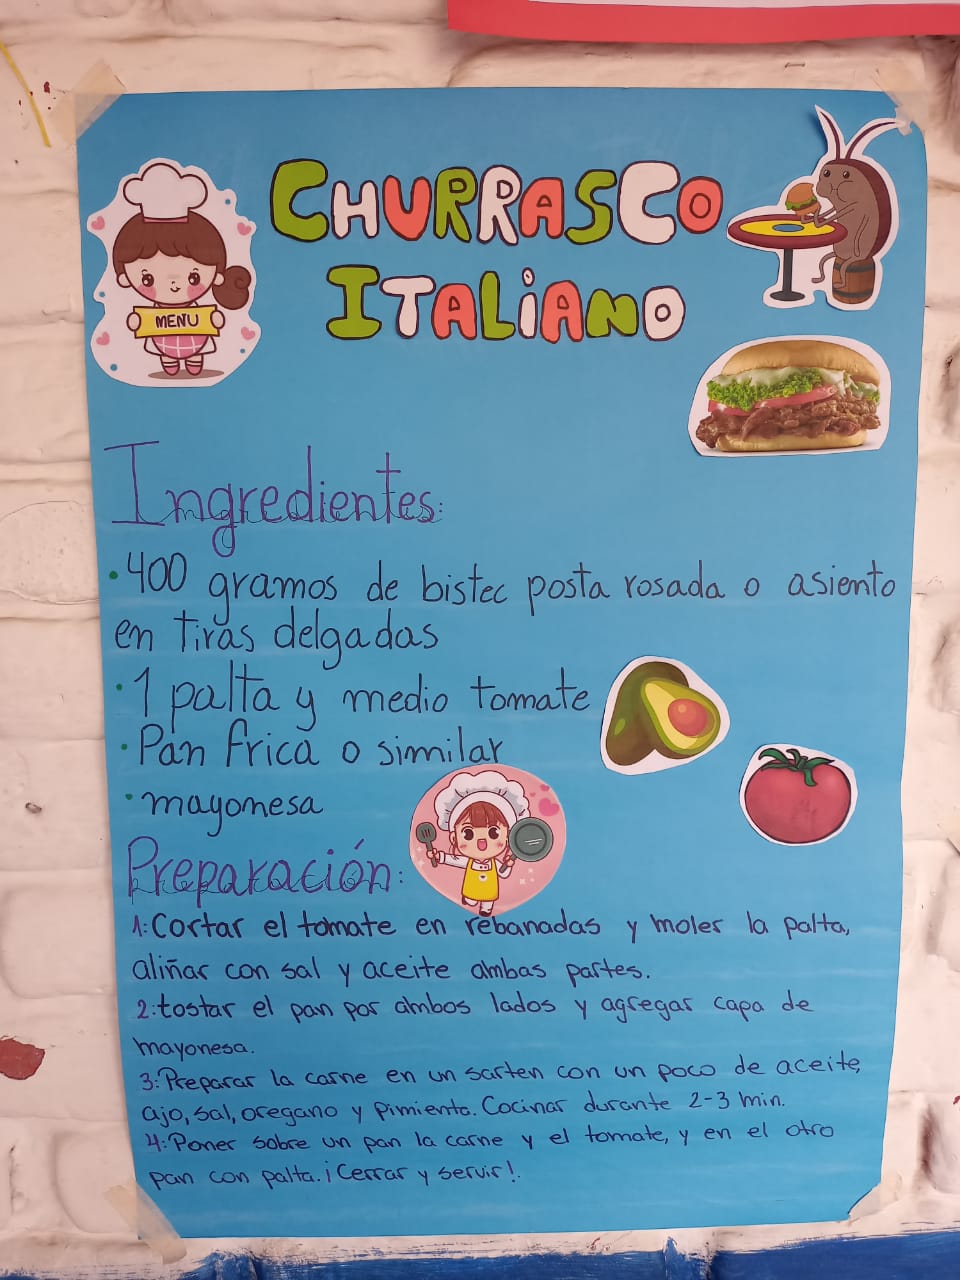 CHURRASCO
ITALIANO
MENU
Ingredientes:
• 400 gramos de bistec posta rosada o asiento
en tiras delgadas
• 1 palta y medio tomate
• Pan frica o similar
• mayonesa
Preparación:
1: Cortar el tomate en rebanadas y moler la palta,
aliñar con sal y aceite ambas partes.
2: tostar el pan por ambos lados y agregar capa de
mayonesa.
3: Preparar la carne en un sarten con un poco de aceite,
ajo, sal, oregano y pimienta. Cocinar durante 2-3 min.
4: Poner sobre un pan la carne y el tomate, y en el otro
pan con palta. ¡Cerrar y servir!.